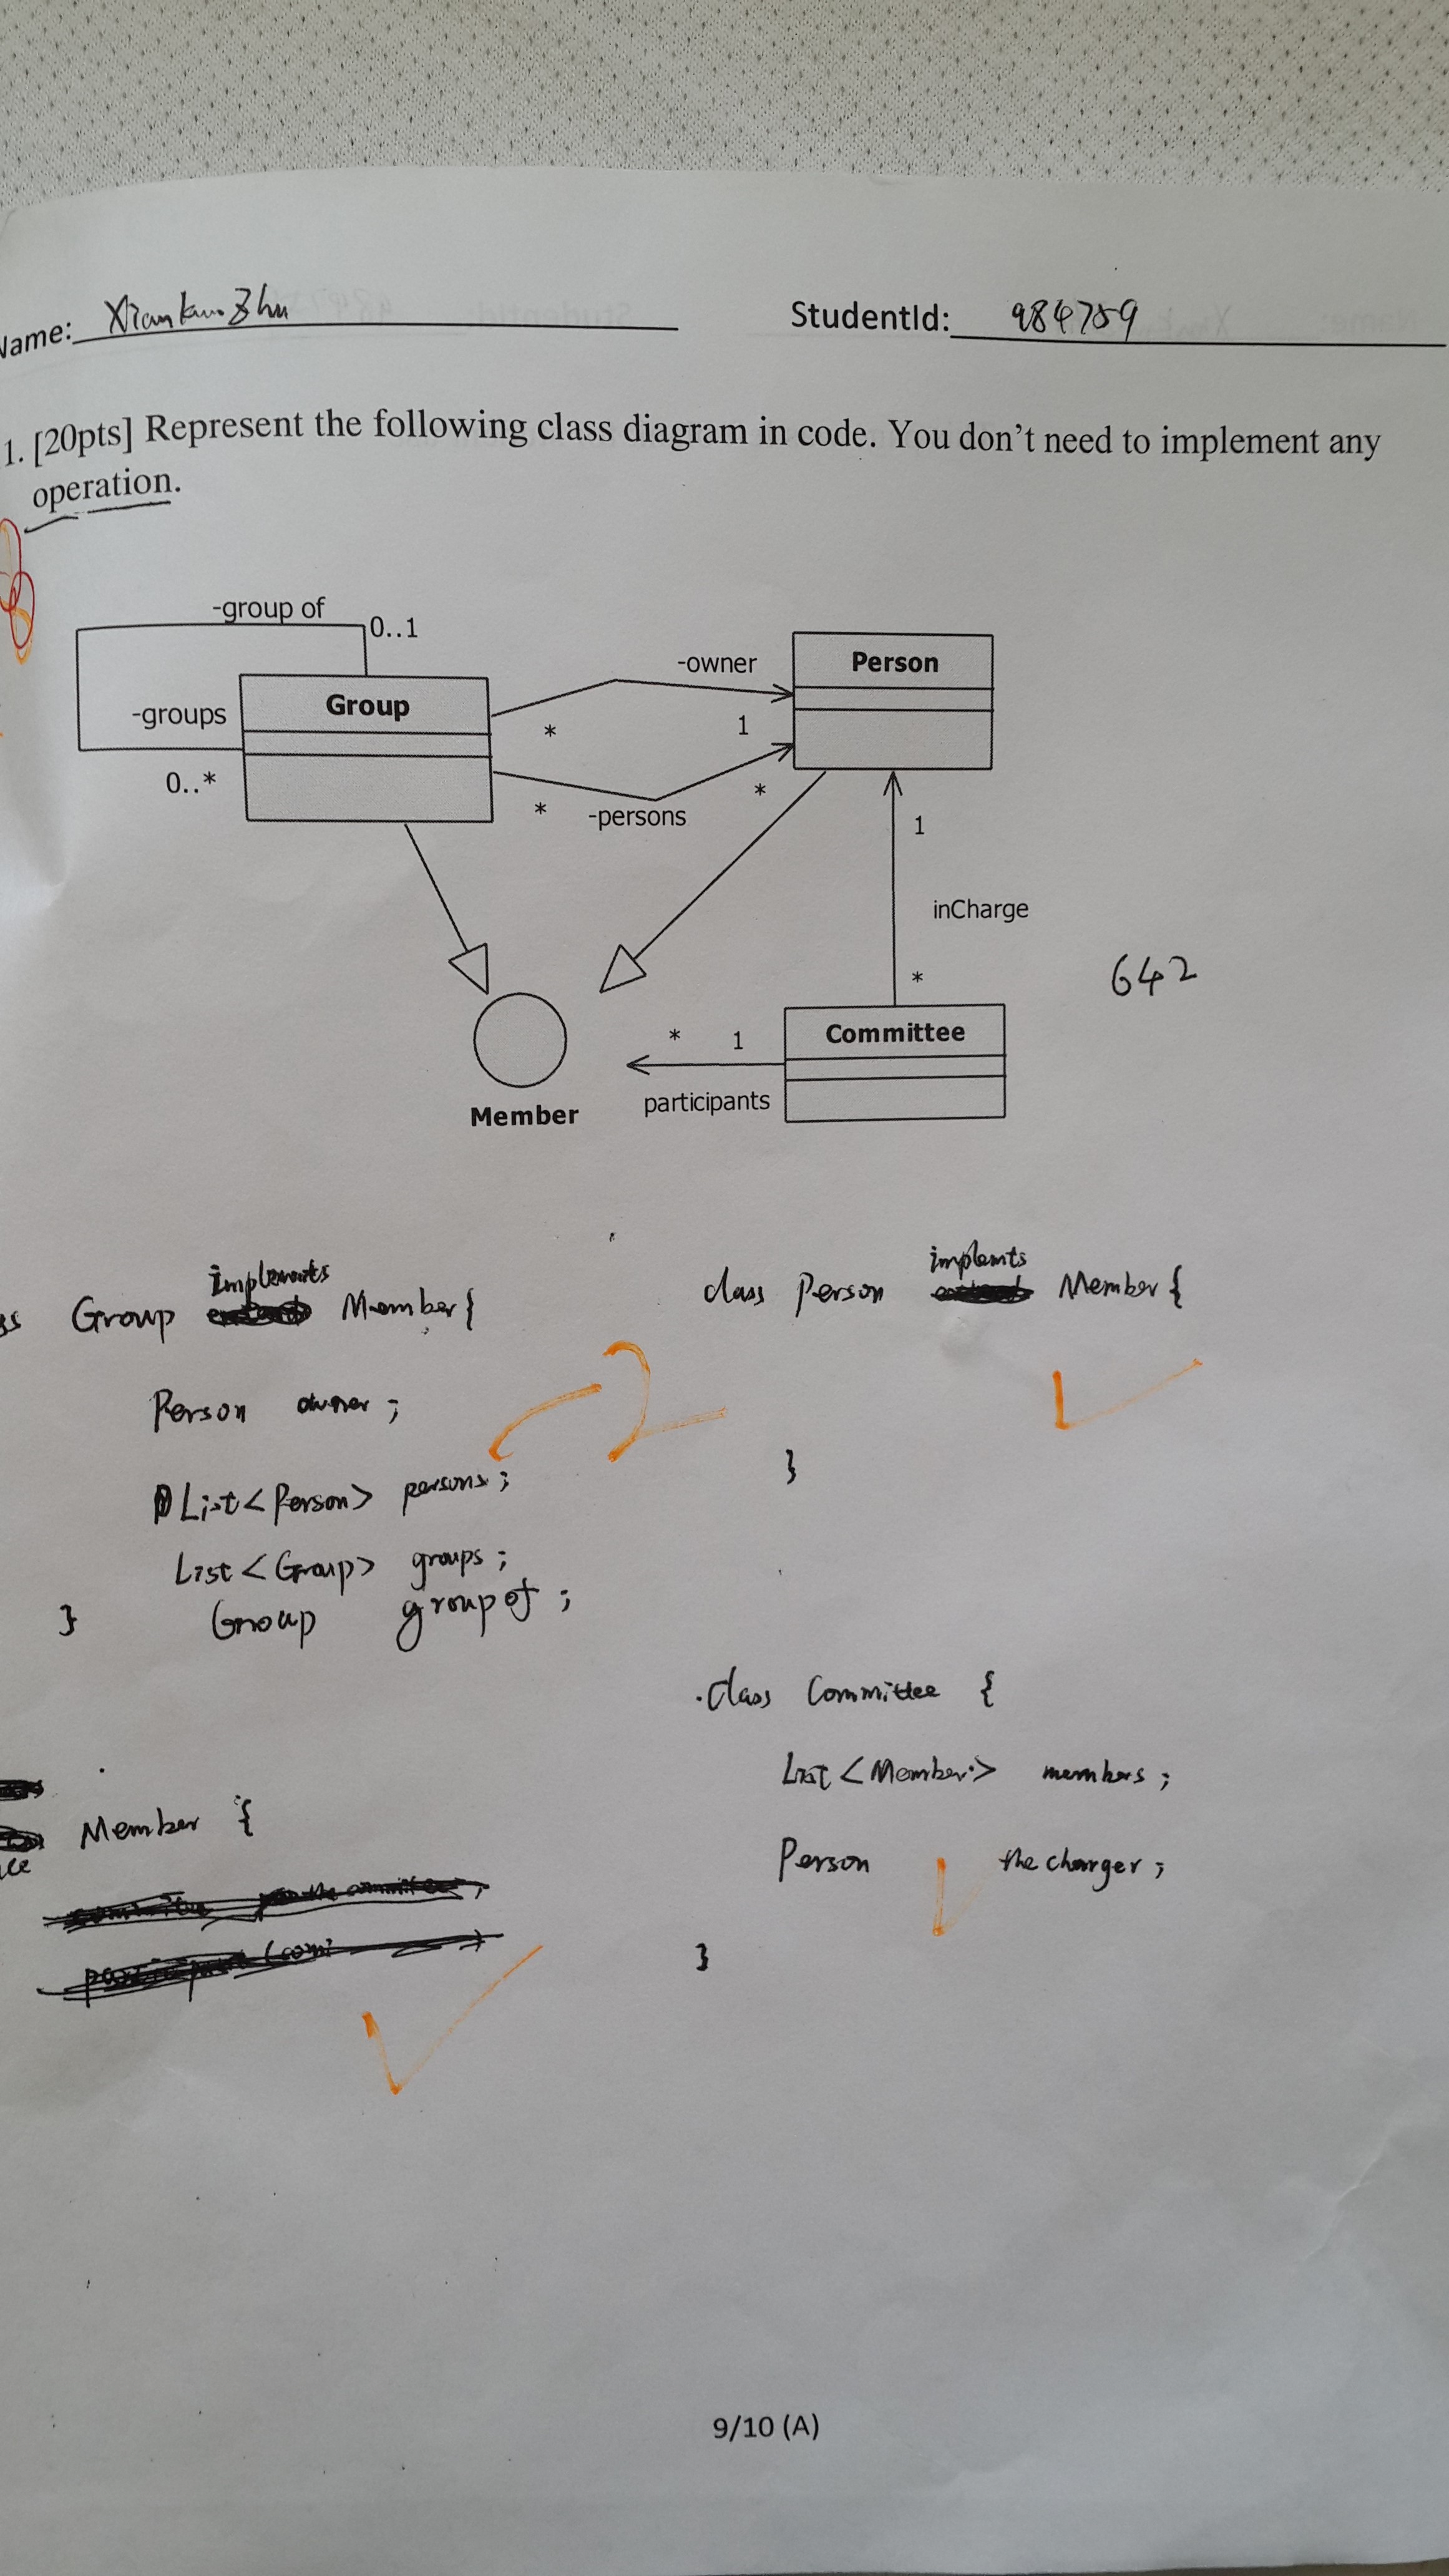 Name: Xiankun Zhu StudentId: 984759
1. [20pts] Represent the following class diagram in code. You don't need to implement any
operation.
-group of
0..1
-groups
0..*
Group
-owner
*
1
*
-persons
*
Person
1
inCharge
*
642
Committee
* 1
participants
Member
ss Group implements Member {
Person owner ;
List<Person> persons ;
List<Group> groups ;
Group groupof ;
}
-2
class Person implemts Member {
}
.class Committee {
List <Member> members ;
Person the charger ;
}
ce Member {
9/10 (A)